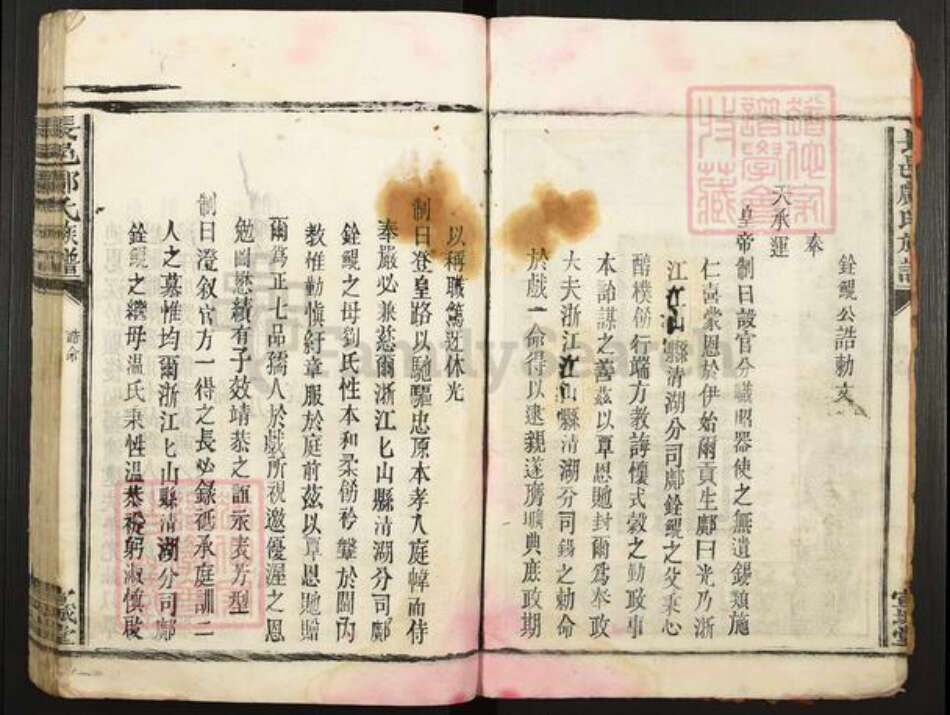 銓鯤公誥勅文
奉
天承運
皇帝制曰設官分職昭器使之無遺錫類施
仁喜蒙恩於伊始爾貢生鄺曰光乃浙
江江山縣清湖分司鄺銓鯤之父秉心
醇樸飭行端方教誨懷式穀之勤政事
本詒謀之善茲以覃恩貤封爾為奉政
大夫浙江江山縣清湖分司錫之勅命
於戲一命得以逮親遂廣曠典庶政期
以稱職篤迓休光
制曰登皇路以馳驅忠原本孝入庭幃而侍
奉嚴必兼慈爾浙江匕山縣清湖分司鄺
銓鯤之母劉氏性本和柔飭衿鞶於閫內
教惟勤慎紆章服於庭前茲以覃恩貤贈
爾為正七品孺人於戲所視邀優渥之恩
勉圖懋績有子效靖恭之誼永表芳型
制曰澄敘官方一得之長必錄祗承庭訓二
人之慕惟均爾浙江匕山縣清湖分司鄺
銓鯤之繼母溫氏秉性溫恭褆躬淑慎敬
長邑鄺氏族譜
誥命
FamilySearch